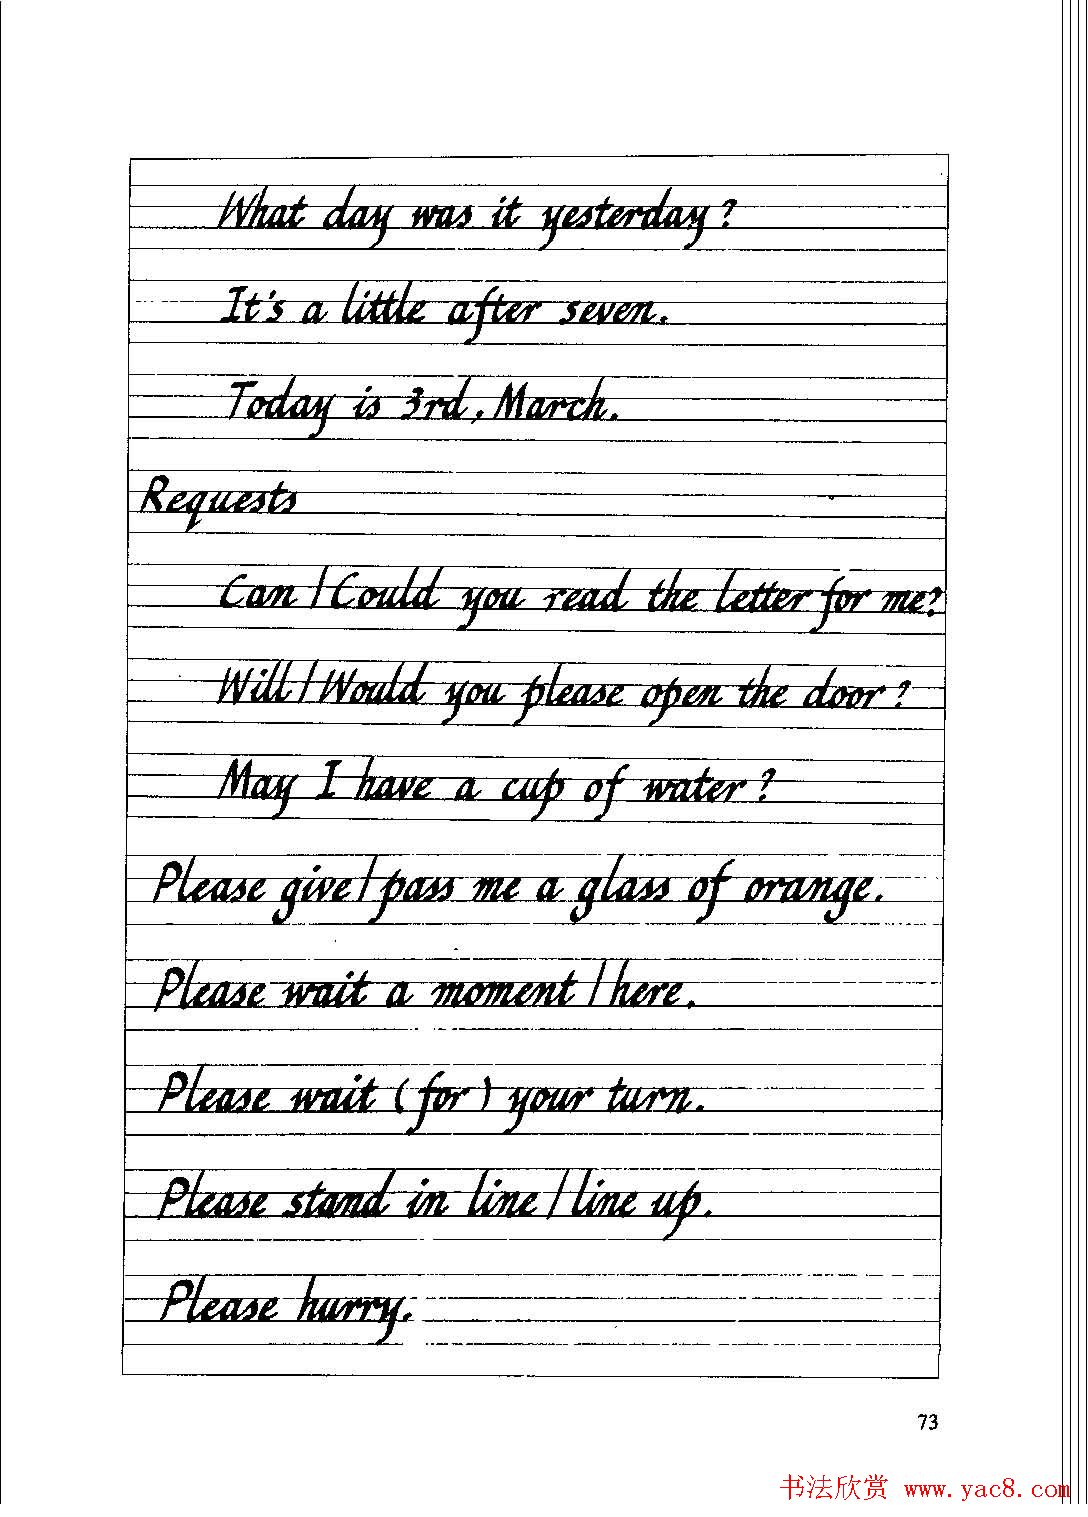 What day was it yesterday?
It's a little after seven.
Today is 3rd, March.
Requests
Can / Could you read the letter for me?
Will / Would you please open the door?
May I have a cup of water?
Please give / pass me a glass of orange.
Please wait a moment / here.
Please wait (for) your turn.
Please stand in line / line up.
Please hurry.
73
书法欣赏 www.yac8.com